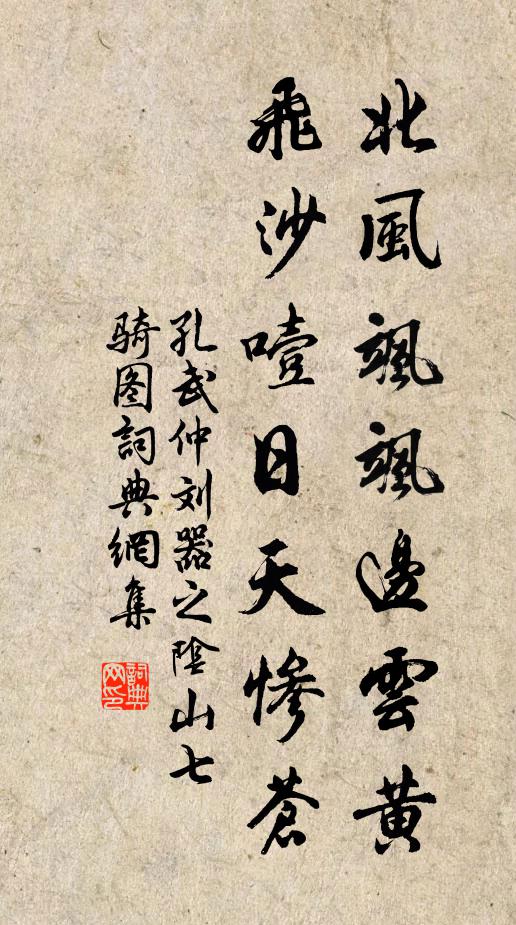 北風颯颯邊雲黄
飛沙噎日天慘蒼
孔武仲刘器之陰山七
骑图詞典網集
詞典
网印